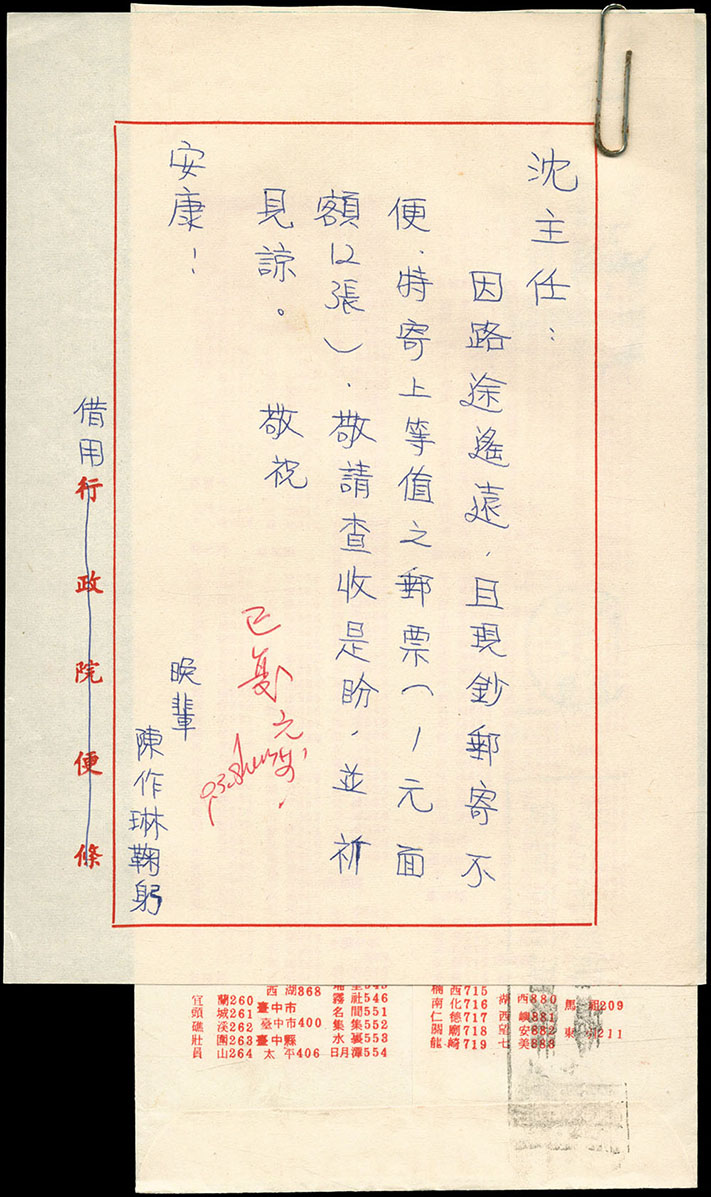 沈主任：
因路途遙遠，且現鈔郵寄不
便，特寄上等值之郵票（1元面
額12張），敬請查收是盼，並祈
見諒。敬祝
安康！
晚輩
陳作琳鞠躬
借用行政院便條
已覆
西湖368
宜蘭260
頭城261
礁溪262
壯圍263
員山264
臺中市
臺中市400
臺中縣
太平406
霧社546
名間551
集集552
水裏553
日月潭554
楠西715
南化716
仁德717
關廟718
龍崎719
湖西880
西嶼881
望安882
七美883
馬祖209
東
211